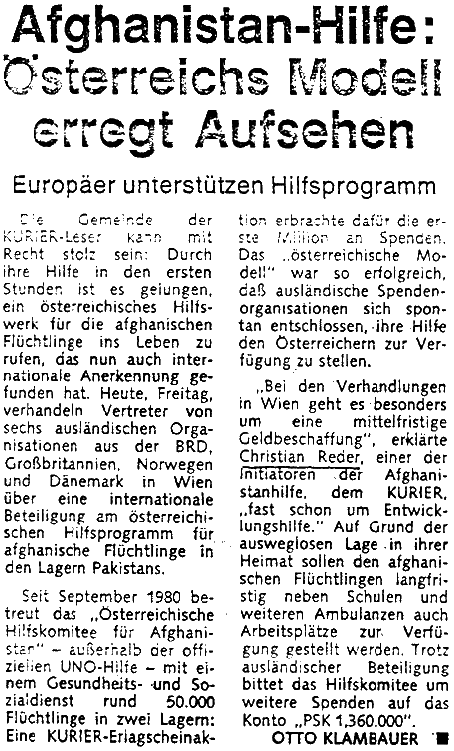 Afghanistan-Hilfe:
Österreichs Modell
erregt Aufsehen
Europäer unterstützen Hilfsprogramm
Die Gemeinde der
KURIER-Leser kann mit
Recht stolz sein: Durch
ihre Hilfe in den ersten
Stunden ist es gelungen,
ein österreichisches Hilfs-
werk für die afghanischen
Flüchtlinge ins Leben zu
rufen, das nun auch inter-
nationale Anerkennung ge-
funden hat. Heute, Freitag,
verhandeln Vertreter von
sechs ausländischen Orga-
nisationen aus der BRD,
Großbritannien, Norwegen
und Dänemark in Wien
über eine internationale
Beteiligung am österreichi-
schen Hilfsprogramm für
afghanische Flüchtlinge in
den Lagern Pakistans.
Seit September 1980 be-
treut das „Österreichische
Hilfskomitee für Afghani-
stan" – außerhalb der offi-
ziellen UNO-Hilfe – mit ei-
nem Gesundheits- und So-
zialdienst rund 50.000
Flüchtlinge in zwei Lagern:
Eine KURIER-Erlagscheinak-
tion erbrachte dafür die er-
ste Million an Spenden.
Das „österreichische Mo-
dell" war so erfolgreich,
daß ausländische Spenden-
organisationen sich spon-
tan entschlossen, ihre Hilfe
den Österreichern zur Ver-
fügung zu stellen.
„Bei den Verhandlungen
in Wien geht es besonders
um eine mittelfristige
Geldbeschaffung", erklärte
Christian Reder, einer der
Initiatoren der Afghani-
stanhilfe, dem KURIER,
„fast schon um Entwick-
lungshilfe." Auf Grund der
ausweglosen Lage in ihrer
Heimat sollen den afghani-
schen Flüchtlingen langfri-
stig neben Schulen und
weiteren Ambulanzen auch
Arbeitsplätze zur Verfü-
gung gestellt werden. Trotz
ausländischer Beteiligung
bittet das Hilfskomitee um
weitere Spenden auf das
Konto „PSK 1,360.000".
OTTO KLAMBAUER ■